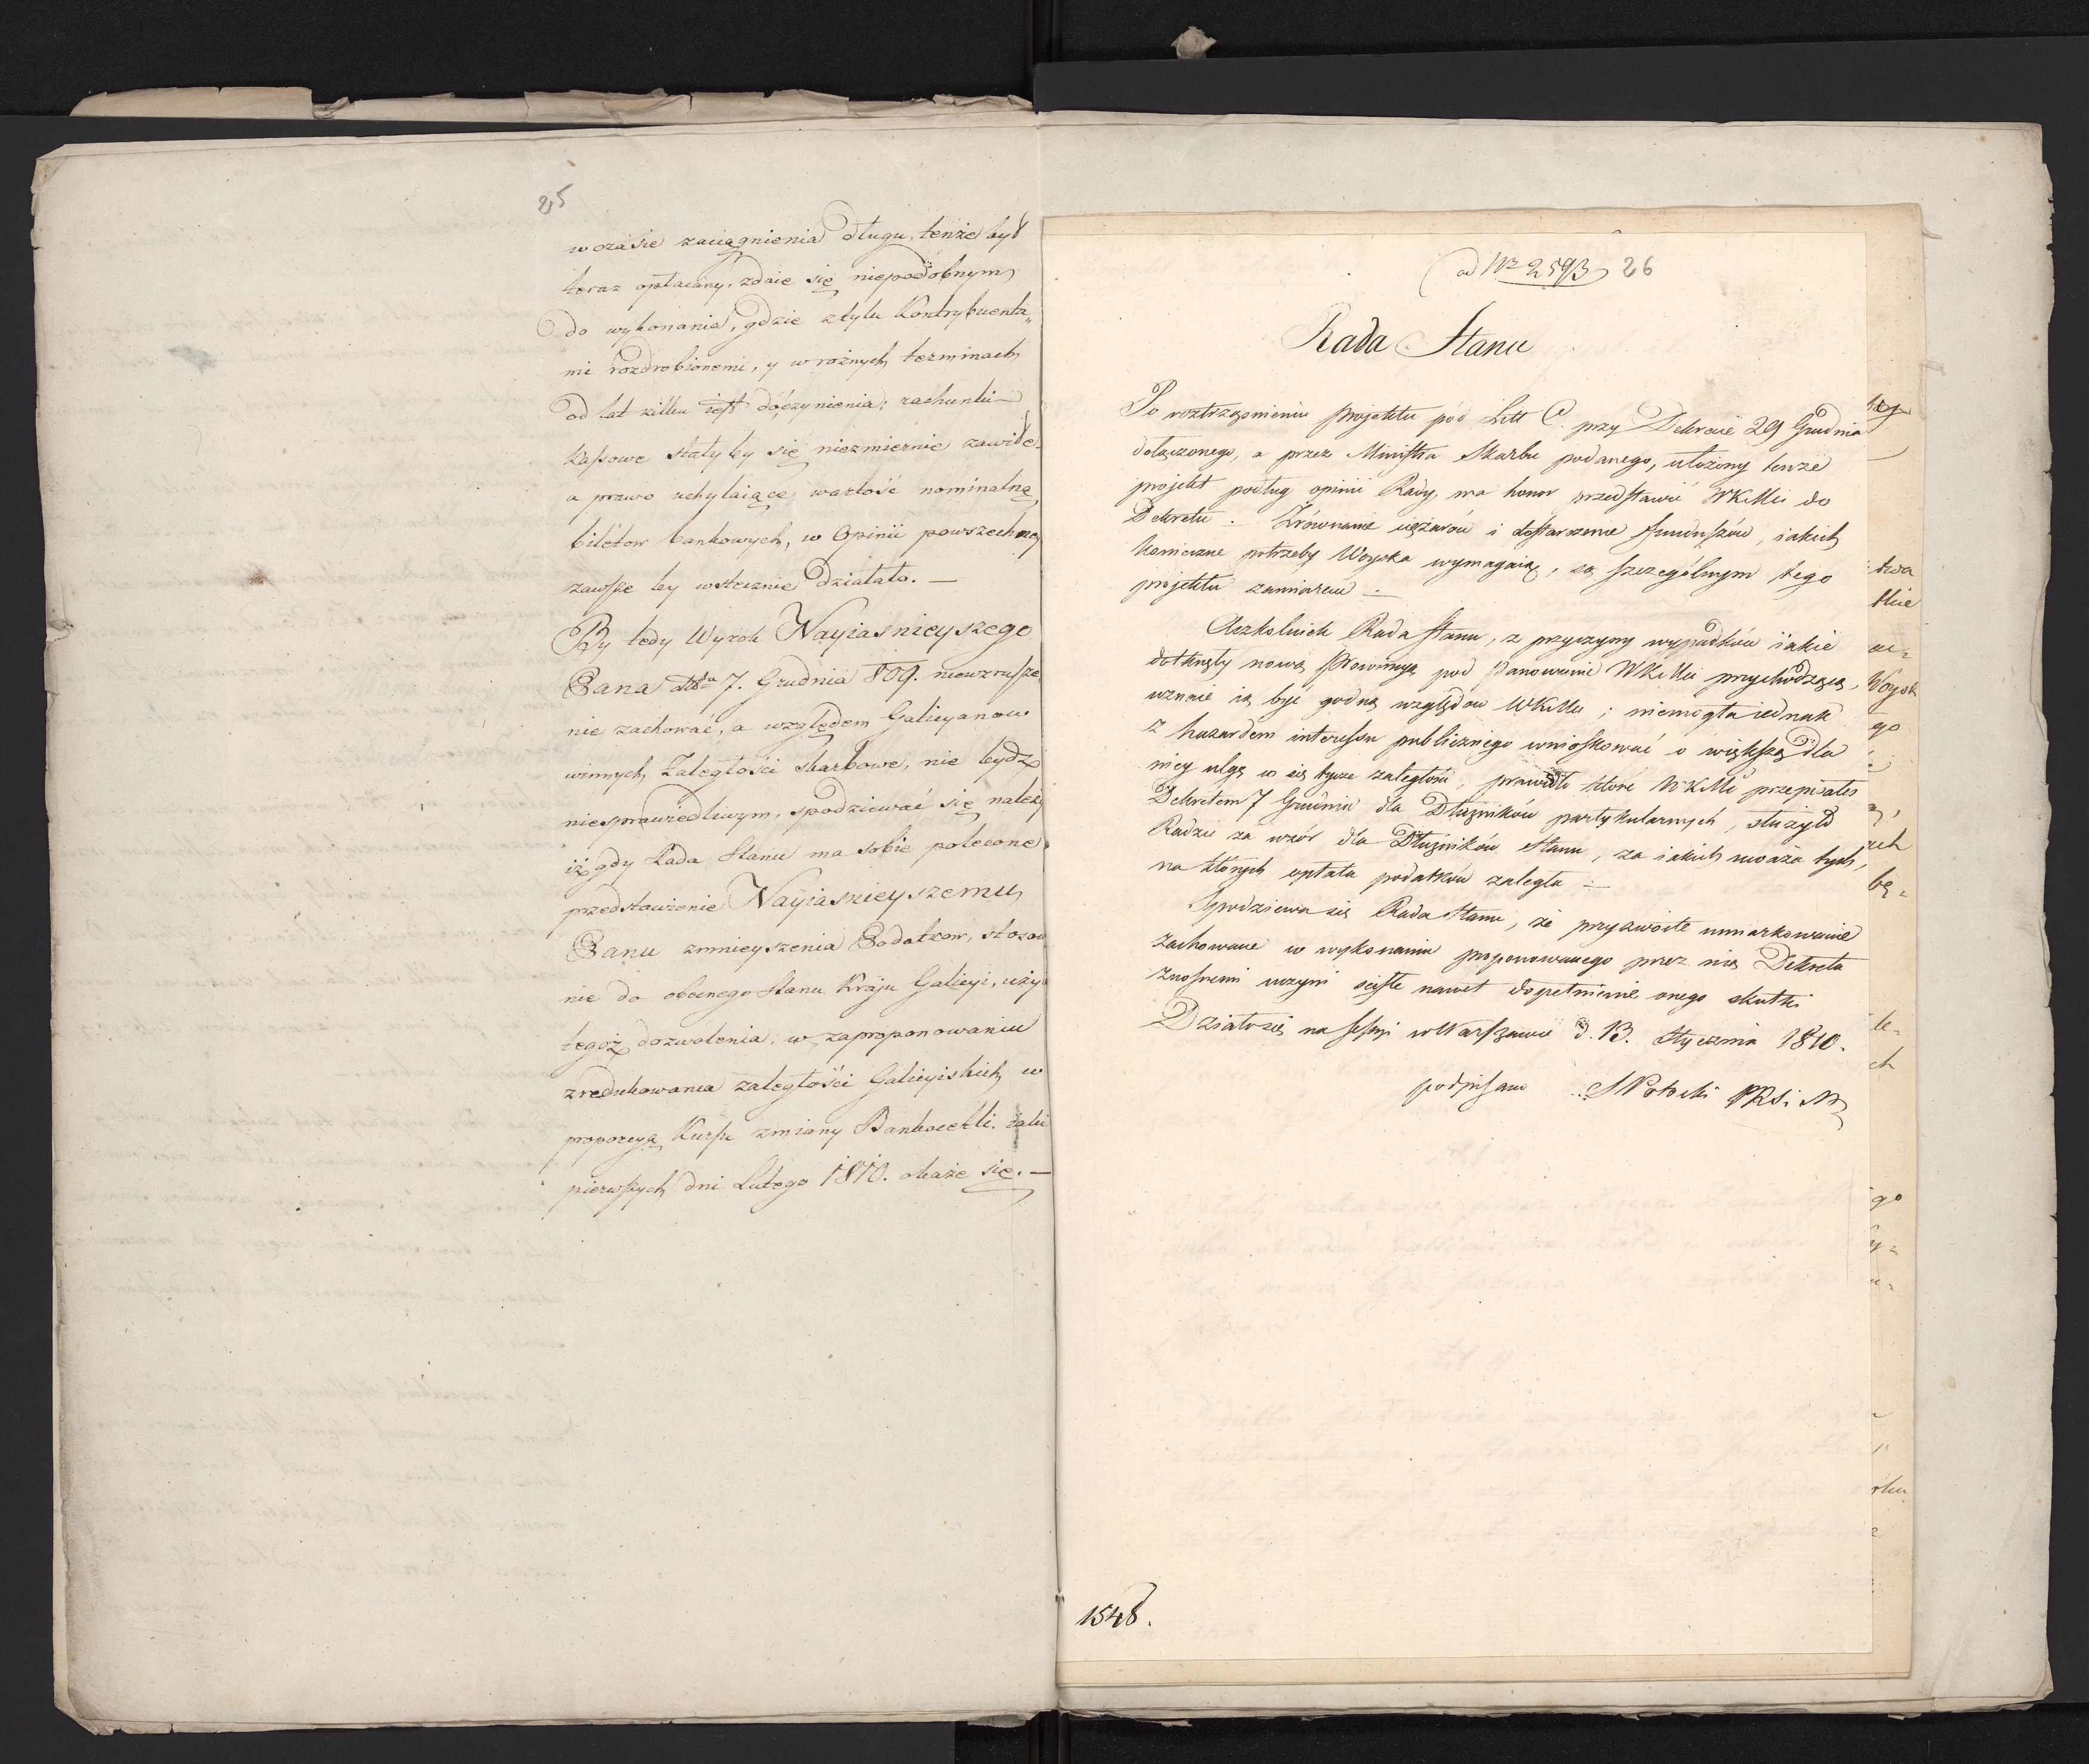 25
w czasie zaciągnienia długu, tenże był
teraz opłacany, zdaie się niepodobnym
do wykonania, gdzie z tylu Kontrybuenta„
mi rozdrobionemi, y w rożnych terminach
od lat kilku iest do czynienia; rachunki
Kassowe stałyby się niezmiernie zawiłe,
a prawo uchylaiące wartość nominalną
biletow bankowych, w Opinii powszechney
zawsze by wstecznie działało. —
By tedy Wyrok Nayiasnieyszego
Pana 7. Grudnia 809. niewzrusze„
nie zachować, a względem Galicyanow
winnych Zaległości skarbowe, nie bydź
niesprawiedliwym, spodziewać się należy
iż gdy Rada Stanu ma sobie polecone
przedstawienie Nayiasnieyszemu
Panu zmnieyszenia Podatkow, stosow
nie do obecnego Stanu Kraju Galicyi, użyie
tegoż dozwolenia, w zaproponowaniu
zredukowania zaległości Galicyiskich w
proporcyą Kursu zmiany Bankocetli, iaki
pierwszych dni Lutego 1810. okaże się. —
ad Nr 2593 26
Rada Stanu
Po roztrząsnieniu projektu pod Litt C. przy Dekrecie 29 Grudnia
dołączonego, a przez Ministra Skarbu podanego, ułożony tenże
projekt podług opinii Rady, ma honor przedstawić WKMci do
Dekretu. Zrównanie ciężarów i dostarczenie funduszów, iakich
konieczne potrzeby Woyska wymagaią, są szczególnym tego
projektu zamiarem —
Aczkolwiek Rada Stanu, z przyczyny wypadków iakie
dotknęły nową Prowincyą pod Panowanie WKMci przychodzącą,
uznaie ią być godną względów WKMci; niemogła iednak
z hazardem interessu publicznego wnioskować o większą dla
niey ulgę w się tycze zaległości, prawidło które WKMć przepisałeś
Dekretem 7 Grudnia dla Dłużników partykularnych, służyło
Radzie za wzór dla Dłużników Stanu, za iakich uważa tych,
na których opłata podatków zaległa —
Spodziewa się Rada Stanu, że przyzwoite umiarkowanie
zachowane w wykonaniu proponowanego przez nią Dekretu
znośnemi uczyni ścisłe nawet dopełnienie onego skutki
Działo się na Sessyi w Warszawie d. 13. Stycznia 1810.
podpisano S Potocki PRS i M
1548.